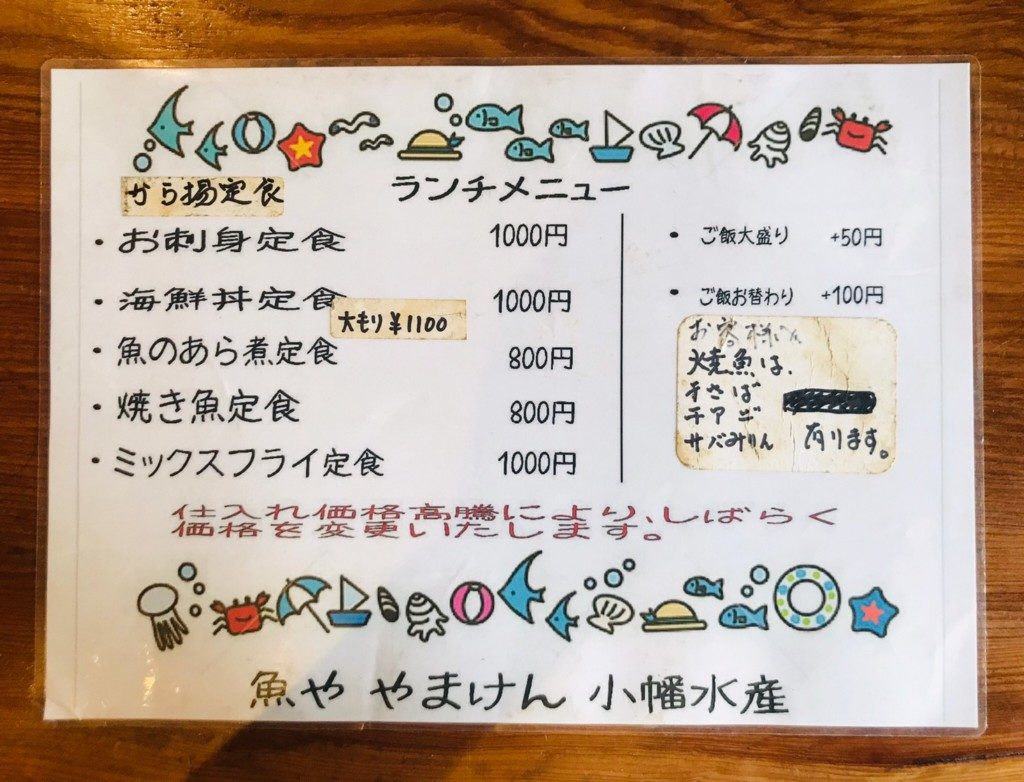 ランチメニュー
から揚定食
・お刺身定食 1000円
・海鮮丼定食 1000円
大もり¥1100
・魚のあら煮定食 800円
・焼き魚定食 800円
・ミックスフライ定食 1000円
・ご飯大盛り +50円
・ご飯お替わり +100円
お客様へ
焼魚は、
干さば
干アゴ
サバみりん 有ります。
仕入れ価格高騰により、しばらく
価格を変更いたします。
魚や やまけん 小幡水産